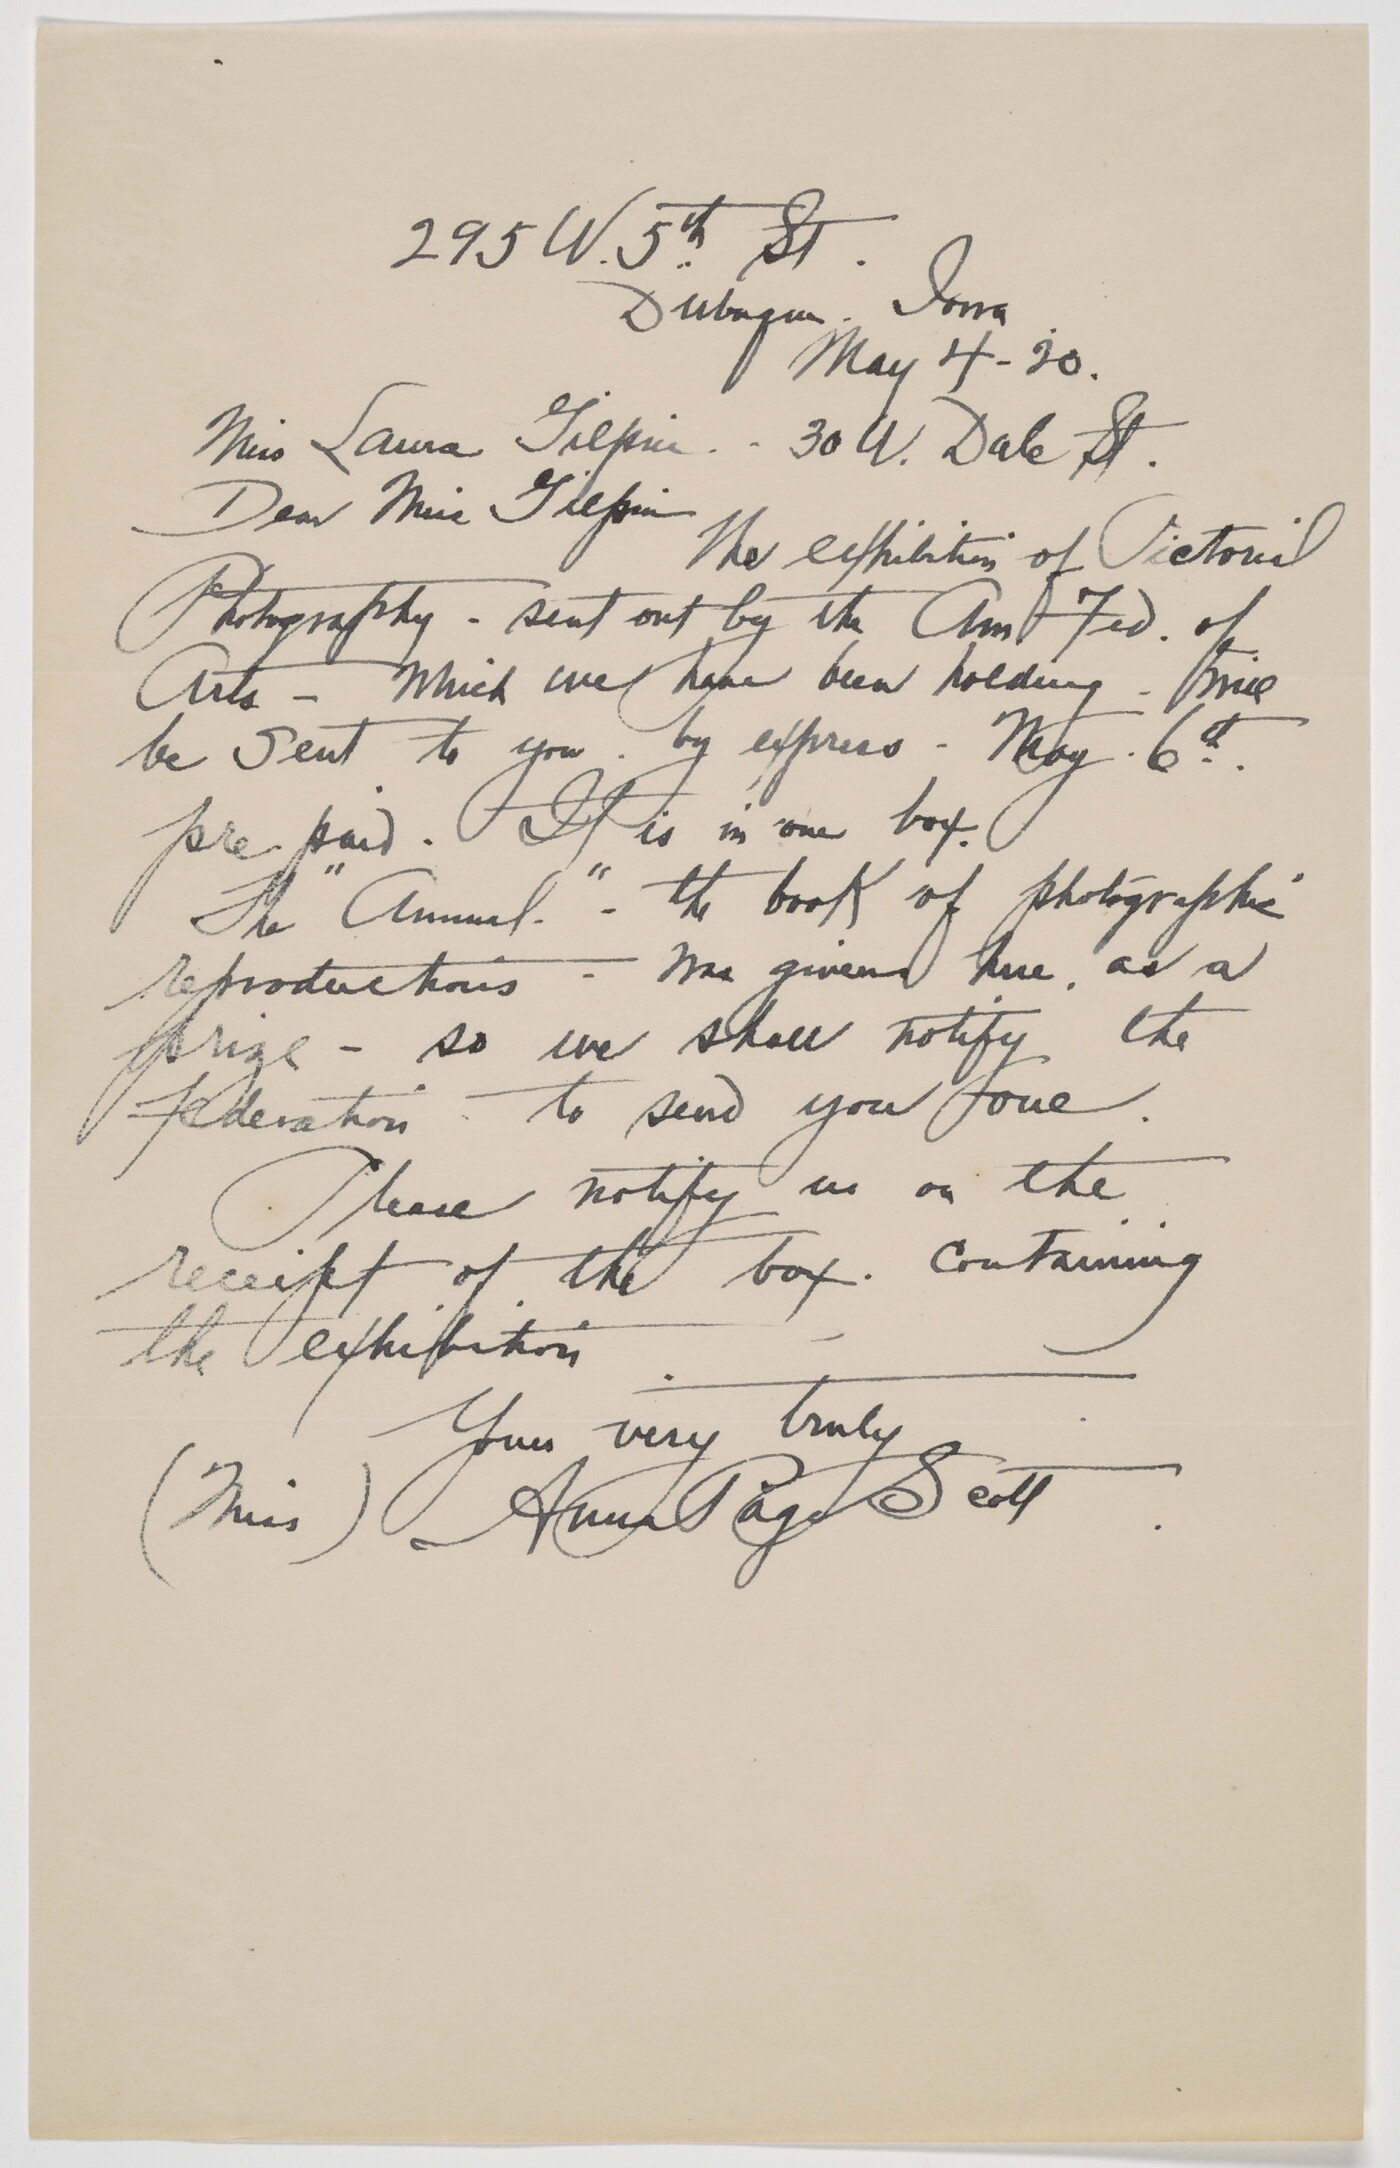 295 W. 5th St.
Dubuque. Iowa
May 4-20.
Miss Laura Gilpin. - 30 W. Dale St.
Dear Miss Gilpin
The exhibition of Pictorial
Photography - sent out by the Am Fed. of
Arts - which we have been holding - will
be sent to you. by express - May. 6th.
pre paid. It is in one box.
The "Annual" - the book of photographic
reproductions - was given here, as a
prize - so we shall notify the
Federation - to send you one.
Please notify us on the
receipt of the box. containing
the exhibition
Yours very truly
(Miss) Anna Page Scott